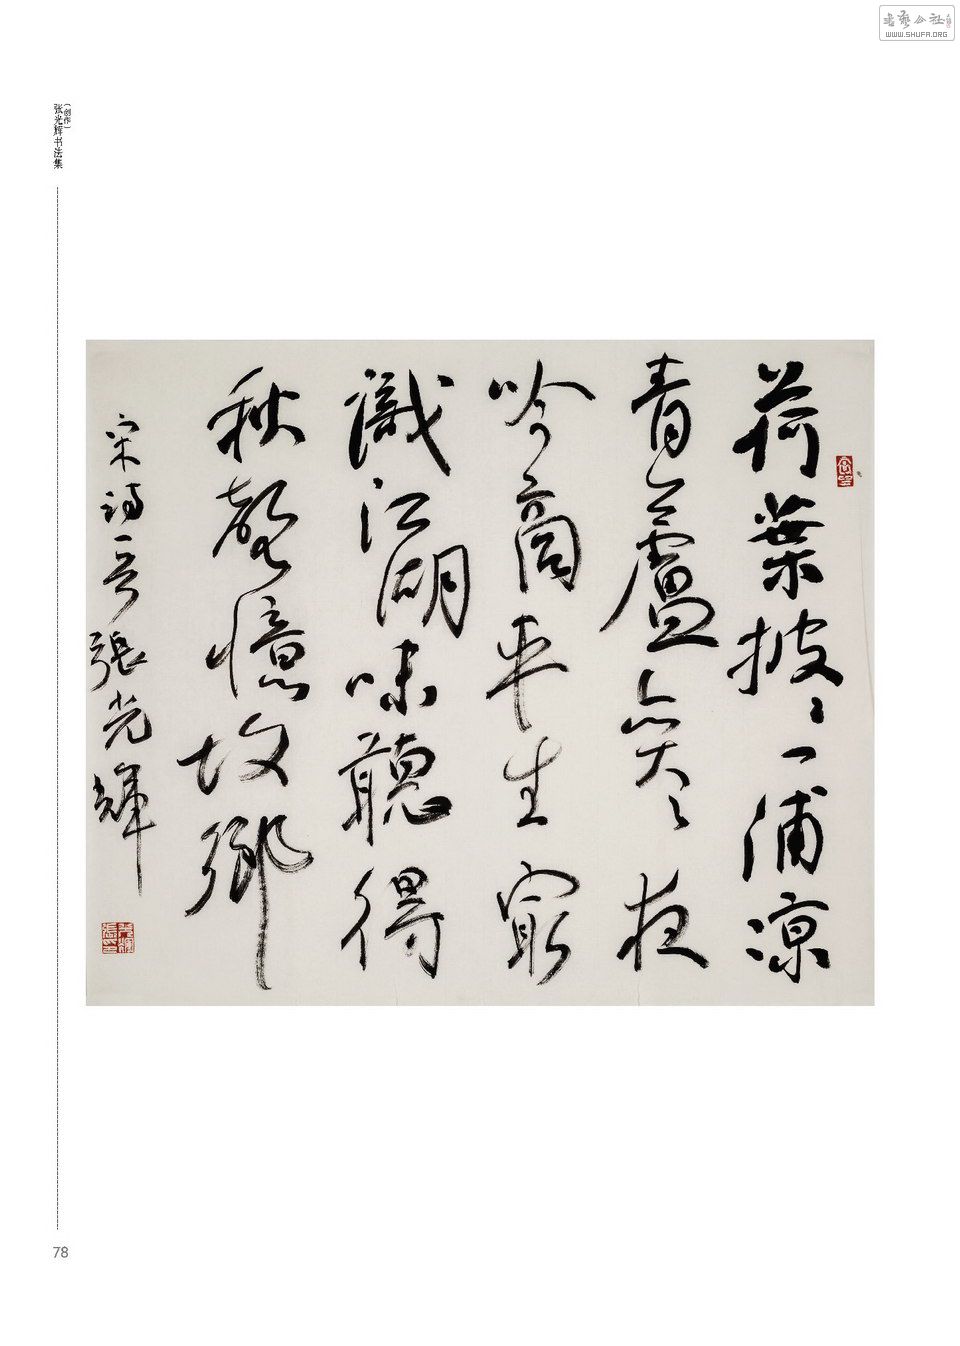 书艺公社
WWW.SHUFA.ORG
(创作)
张光辉书法集
荷葉披〻一浦涼
青蘆奕〻夜
吟商平生最
識江湖味聽得
秋聲憶故鄉
宋詩一首 張光輝
78